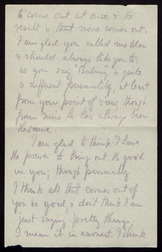 to come out at once & the
result is that none comes out.
I am glad you called me dear
& should always like you to;
as you say "Baling" again to
a different personality, at least
from your point of view, though
from mine he has always been
the same.
I am glad to think I have
the power to bring out the good
in you, though personally
I think all that comes out of
you is good, & don't think I am
just saying pretty things,
I mean it in earnest. I think